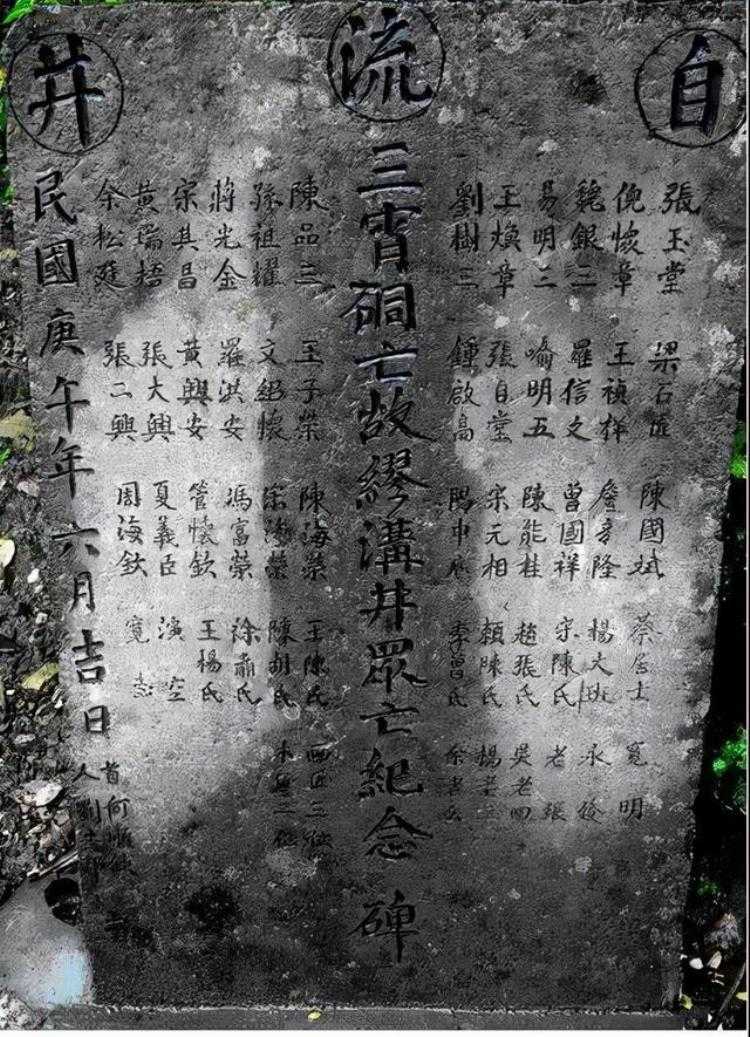 自流井
張玉堂 梁石匠 陳國斌 蔡居士 寬明
倪懷章 王禎祥 詹彥隆 楊大 永
魏銀二 羅信之 曾國祥 宗陳氏 老張
易明三 喻明五 陳能桂 趙張氏 吳老四
王煥章 張自堂 宋元相 賴陳氏 楊老三
劉樹三 鍾啟高 申 李曾氏 余李氏
三宵硐亡故繆溝井眾亡紀念碑
陳品三 王子榮 陳海榮 王陳氏 匠三位
孫祖耀 文紹懷 宗海榮 陳胡氏 木匠二位
蔣光金 羅洪安 馮富榮 徐蕭氏
宗其昌 黃興安 管懷欽 王楊氏
黃瑞梧 張大興 夏義臣 演空
余松廷 張二興 周海欽 寬志
民國庚午年六月吉日
首何
人劉